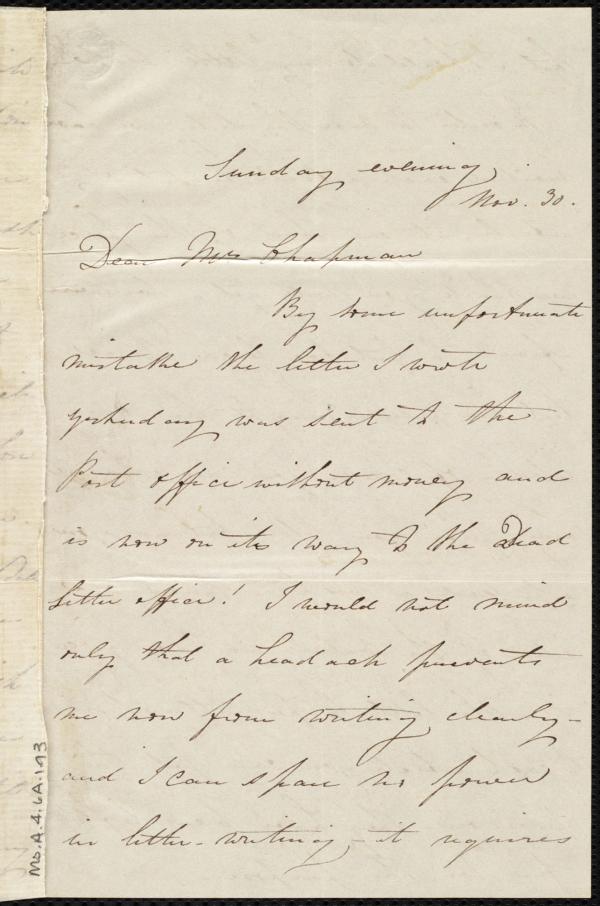 Sunday evening,
Nov. 30.
Dear Mrs Chapman
By some unfortunate
mistake the letter I wrote
yesterday was sent to the
Post office without money and
is now on its way to the Dead
letter office! I would not mind
only that a headach prevents
me now from writing clearly -
and I can spare no power
in letter-writing, - it requires
Ms.A.4.6A.1.93